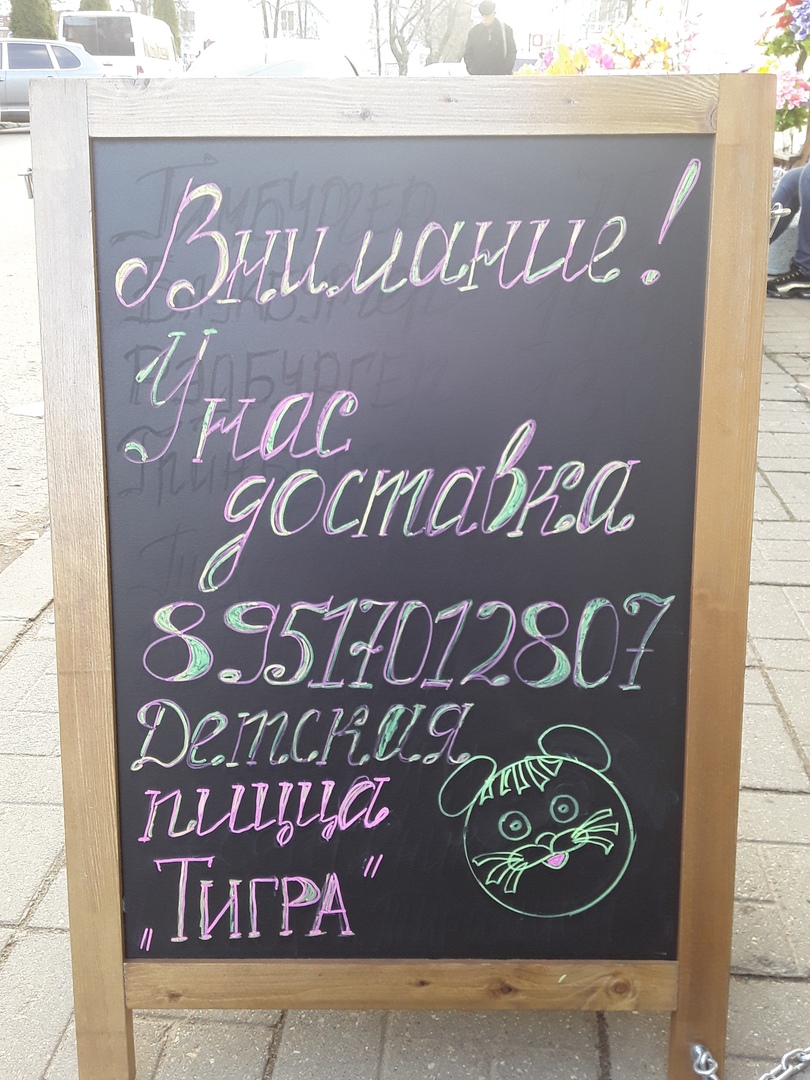 Внимание!
У нас
доставка
89517012807
Детская
пицца
„Тигра"